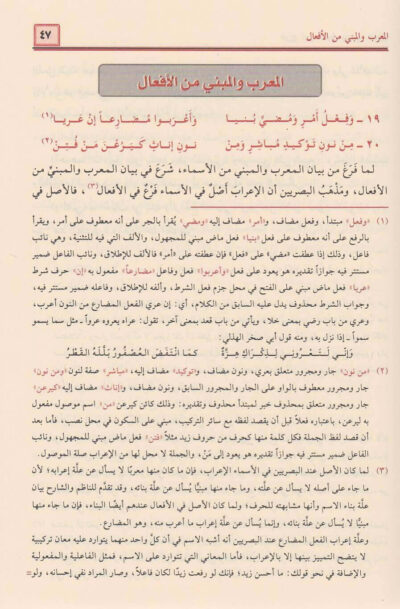 المعرب والمبني من الأفعال
٤٧
المعرب والمبني من الأفعال
١٩ ـ وَفِعْلُ أَمْرٍ وَمُضِيٍّ بُنيا وَأَعْرَبوا مُضَارِعاً إنْ عَرِيا(١)
٢٠ ـ مِنْ نونِ تَوْكيدٍ مُباشِرٍ وَمِنْ نونِ إناثٍ كيَرُعْنَ مَنْ فُتِنْ(٢)
لما فَرَغَ من بيان المعرب والمبني من الأسماء، شَرَعَ في بيان المعرب والمبنيِّ من
الأفعال، ومَذْهَبُ البصريين أن الإعرابَ أَصْلٌ في الأسماء فَرْعٌ في الأفعال(٣)، فالأصل في
(١) «وفعل» مبتدأ، وفعل مضاف، و«أمر» مضاف إليه «ومضي» يُقرأ بالجر على أنه معطوف على أمر، ويقرأ
بالرفع على أنه معطوف على فعل «بنيا» فعل ماض مبني للمجهول، والألف التي فيه للتثنية، وهي نائب
فاعل، وذلك إذا عطفت «مضي» على «فعل» فإن عطفته على «أمر» فالألف للإطلاق، ونائب الفاعل ضمير
مستتر فيه جوازاً تقديره هو يعود على فعل «وأعربوا» فعل وفاعل «مضارعاً» مفعول به «إن» حرف شرط
«عريا» فعل ماض مبني على الفتح في محل جزم فعل الشرط، وألفه للإطلاق، وفاعله ضمير مستتر فيه،
وجواب الشرط محذوف يدل عليه السابق من الكلام، أي: إن عري الفعل المضارع من النون أعرب،
وعري من باب رضي بمعنى خلا، ويأتي من باب قعد بمعنى آخر، تقول: عراه يعروه عرواً ـ مثل سما يسمو
سمواً ـ إذا نزل به، ومنه قول أبي صخر الهذلي:
وَإنّي لَتَعْرُوني لِذِكْرَاكِ هِزَّةٌ كمَا انْتَفَضَ العُصْفُورُ بَلَّلَهُ القَطْرُ
(٢) «من نون» جار ومجرور متعلق بعري، ونون مضاف، و«توكيد» مضاف إليه، «مباشر» صفة لنون «ومن نون»
جار ومجرور معطوف بالواو على الجار والمجرور السابق، ونون مضاف، و«إناث» مضاف إليه «كيرعن»
جار ومجرور متعلق بمحذوف خبر لمبتدأ محذوف وتقديره: وذلك كائن كيرعن «من» اسم موصول مفعول
به ليرعن، باعتباره فعلاً قبل أن يقصد لفظه مع سائر التركيب، مبني على السكون في محل نصب، فأما بعد
أن قصد لفظ الجملة فكل كلمة منها كحرف من حروف زيد مثلاً «فتن» فعل ماض مبني للمجهول، ونائب
الفاعل ضمير مستتر فيه جوازاً تقديره هو يعود إلى مَنْ، والجملة لا محل لها من الإعراب صلة الموصول.
(٣) لما كان الأصل عند البصريين في الأسماء الإعراب، فإن ما كان منها معربًا لا يسأل عن علَّة إعرابه؛ لأن
ما جاء على أصله لا يسأل عن علَّته، وما جاء منها مبنيًّا يُسأل عن علَّة بنائه، وقد تقدَّم للناظم والشارح بيان
علَّة بناء الاسم وأنها مشابهته للحرف؛ ولما كان الأصل في الأفعال عندهم أيضًا البناء، فإن ما جاء منها
مبنيًّا لا يُسأل عن علَّة بنائه، وإنما يُسأل عن علَّة إعراب ما أعرب منه، وهو المضارع.
وعلَّة إعراب الفعل المضارع عند البصريين أنه أشبه الاسم في أن كلَّ واحد منهما يتوارد عليه معان تركيبية
لا يتضح التمييز بينها إلا بالإعراب، فأما المعاني التي تتوارد على الاسم، فمثل الفاعلية والمفعولية
والإضافة في نحو قولك: ما أحسن زيد؛ فإنك لو رفعت زيدًا لكان فاعلاً، وصار المراد نفي إحسانه، ولو=